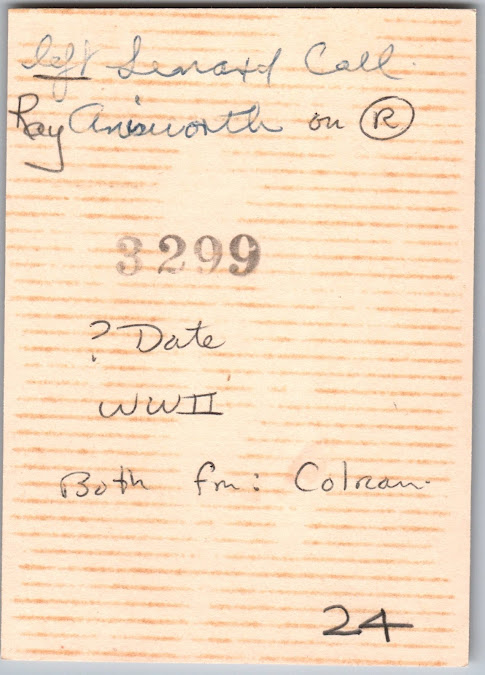 left Lenard Call.
Ray Ainsworth on R
3299
? Date
WWII
Both fm: Colman.
24